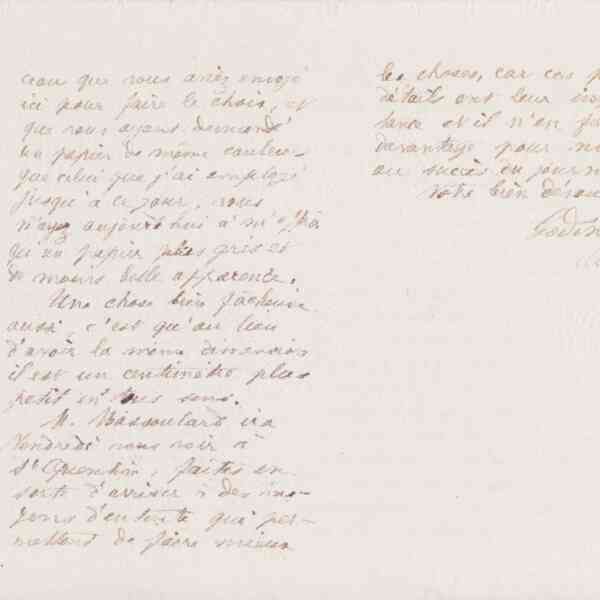 que vous aviez envoyé
ici pour faire le choix, et
que vous ayant demandé
un papier de même couleur
que celui que j'ai employé
jusqu'à ce jour, vous
n'ayez aujourd'hui à m'offrir
qu'un papier plus gris et
de moins belle apparence.
Une chose bien fâcheuse
aussi, c'est qu'au lieu
d'avoir la même dimension
il est un centimètre plus
petit en tous sens.
M. Bassoulard ira
Vendredi vous voir à
St Quentin, faites en
sorte d'arriver à des mo-
yens d'entente qui per-
mettent de faire mieux
les choses, car ces
détails ont leur
tance et il n'en
davantage pour
au succès du
Votre bien
Godin